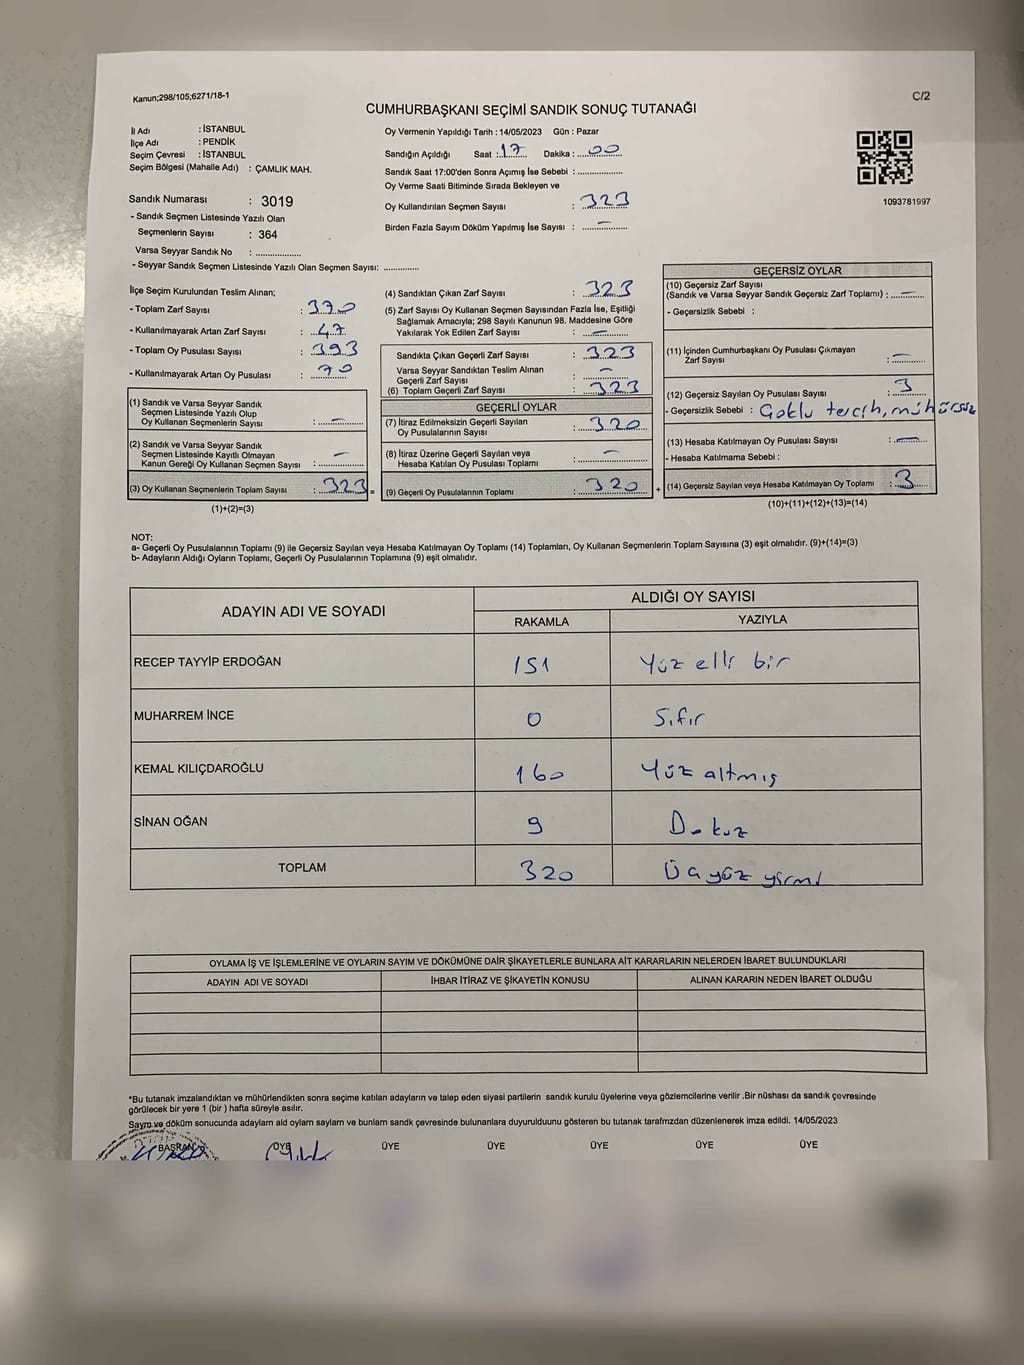 Kanun;298/105;6271/18-1
C/2
CUMHURBAŞKANI SEÇİMİ SANDIK SONUÇ TUTANAĞI
İl Adı : İSTANBUL
İlçe Adı : PENDİK
Seçim Çevresi : İSTANBUL
Seçim Bölgesi (Mahalle Adı) : ÇAMLIK MAH.
Sandık Numarası : 3019
- Sandık Seçmen Listesinde Yazılı Olan
Seçmenlerin Sayısı : 364
Varsa Seyyar Sandık No : ..............
- Seyyar Sandık Seçmen Listesinde Yazılı Olan Seçmen Sayısı: ..............
Oy Vermenin Yapıldığı Tarih : 14/05/2023 Gün : Pazar
Sandığın Açıldığı Saat : 17 Dakika : 00
Sandık Saat 17:00'den Sonra Açımış İse Sebebi : ..............
Oy Verme Saati Bitiminde Sırada Bekleyen ve
Oy Kullandırılan Seçmen Sayısı : 323
Birden Fazla Sayım Döküm Yapılmış İse Sayısı : —
1093781997
İlçe Seçim Kurulundan Teslim Alınan;
- Toplam Zarf Sayısı : 370
- Kullanılmayarak Artan Zarf Sayısı : 47
- Toplam Oy Pusulası Sayısı : 393
- Kullanılmayarak Artan Oy Pusulası : 70
(1) Sandık ve Varsa Seyyar Sandık
Seçmen Listesinde Yazılı Olup
Oy Kullanan Seçmenlerin Sayısı : —
(2) Sandık ve Varsa Seyyar Sandık
Seçmen Listesinde Kayıtlı Olmayan
Kanun Gereği Oy Kullanan Seçmen Sayısı : —
(3) Oy Kullanan Seçmenlerin Toplam Sayısı : 323 =
(1)+(2)=(3)
(4) Sandıktan Çıkan Zarf Sayısı : 323
(5) Zarf Sayısı Oy Kullanan Seçmen Sayısından Fazla İse, Eşitliği
Sağlamak Amacıyla; 298 Sayılı Kanunun 98. Maddesine Göre
Yakılarak Yok Edilen Zarf Sayısı : —
Sandıkta Çıkan Geçerli Zarf Sayısı : 323
Varsa Seyyar Sandıktan Teslim Alınan
Geçerli Zarf Sayısı : —
(6) Toplam Geçerli Zarf Sayısı : 323
GEÇERLİ OYLAR
(7) İtiraz Edilmeksizin Geçerli Sayılan
Oy Pusulalarının Sayısı : 320
(8) İtiraz Üzerine Geçerli Sayılan veya
Hesaba Katılan Oy Pusulası Toplamı : —
(9) Geçerli Oy Pusulalarının Toplamı : 320 +
GEÇERSİZ OYLAR
(10) Geçersiz Zarf Sayısı
(Sandık ve Varsa Seyyar Sandık Geçersiz Zarf Toplamı) : —
- Geçersizlik Sebebi :
(11) İçinden Cumhurbaşkanı Oy Pusulası Çıkmayan
Zarf Sayısı : —
(12) Geçersiz Sayılan Oy Pusulası Sayısı : 3
- Geçersizlik Sebebi : Çoklu tercih, mühürsüz
(13) Hesaba Katılmayan Oy Pusulası Sayısı : —
- Hesaba Katılmama Sebebi :
(14) Geçersiz Sayılan veya Hesaba Katılmayan Oy Toplamı : 3
(10)+(11)+(12)+(13)=(14)
NOT:
a- Geçerli Oy Pusulalarının Toplamı (9) ile Geçersiz Sayılan veya Hesaba Katılmayan Oy Toplamı (14) Toplamları, Oy Kullanan Seçmenlerin Toplam Sayısına (3) eşit olmalıdır. (9)+(14)=(3)
b- Adayların Aldığı Oyların Toplamı, Geçerli Oy Pusulalarının Toplamına (9) eşit olmalıdır.
ADAYIN ADI VE SOYADI
ALDIĞI OY SAYISI
RAKAMLA YAZIYLA
RECEP TAYYİP ERDOĞAN 151 Yüz elli bir
MUHARREM İNCE 0 Sıfır
KEMAL KILIÇDAROĞLU 160 Yüz altmış
SİNAN OĞAN 9 Dokuz
TOPLAM 320 Üçyüz yirmi
OYLAMA İŞ VE İŞLEMLERİNE VE OYLARIN SAYIM VE DÖKÜMÜNE DAİR ŞİKAYETLERLE BUNLARA AİT KARARLARIN NELERDEN İBARET BULUNDUKLARI
ADAYIN ADI VE SOYADI İHBAR İTİRAZ VE ŞİKAYETİN KONUSU ALINAN KARARIN NEDEN İBARET OLDUĞU
*Bu tutanak imzalandıktan ve mühürlendikten sonra seçime katılan adayların ve talep eden siyasi partilerin sandık kurulu üyelerine veya gözlemcilerine verilir .Bir nüshası da sandık çevresinde
görülecek bir yere 1 (bir ) hafta süreyle asılır.
Sayro ve döküm sonucunda adaylam ald oylam saylam ve bunlam sandk çevresinde bulunanlara duyurulduunu gösteren bu tutanak tarafmzdan düzenlenerek imza edildi. 14/05/2023
BAŞKAN ÜYE ÜYE ÜYE ÜYE ÜYE ÜYE